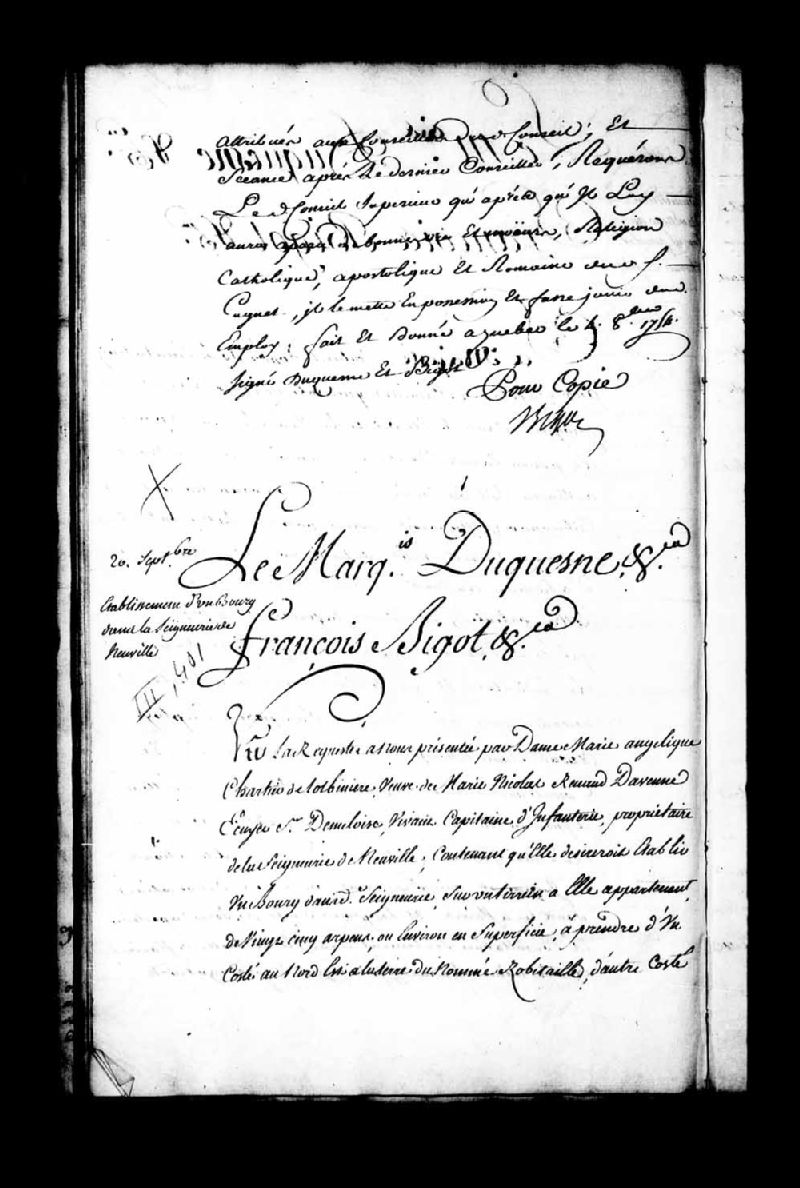 attribués aux Conseillers du d. Conseil, Et
Séance après le dernier Conseiller, Requérons
Le d. Conseil Superieur qu'après qu'Il Luy
aura de bonne vie Et mœurs, Religion
Catholique, apostolique Et Romaine du d. S.
Cugnet, il le mette En possession Et fasse jouir dud.
Employ; fait Et Donné a quebec le 8.bre 1754.
signé Duquesne Et Bigot
Pour Copie
Bigot
20. Sept.bre
Etablissement d'un Bourg
dans la Seigneurie de
Neuville
III, 401
Le Marq.is Duquesne &.ca
François Bigot, &.ca
Vu La Requeste a nous présentée par Dame Marie angelique
Chartier de Lotbiniere, Veuve de Marie Nicolas Renaud Davenne
Ecuyer S.r Demeloise, Vivant Capitaine d'Infanterie, propriétaire
de la Seigneurie de Neuville; Contenant qu'Elle desireroit Etablir
Un Bourg dans la d.e Seigneurie, Sur un terrein a Elle appartenant,
de Vingt cinq arpens, ou Environ en Superficie, à prendre d'Un
Costé au Nord Est a la terre du Nommé Robitaille, d'autre Costé